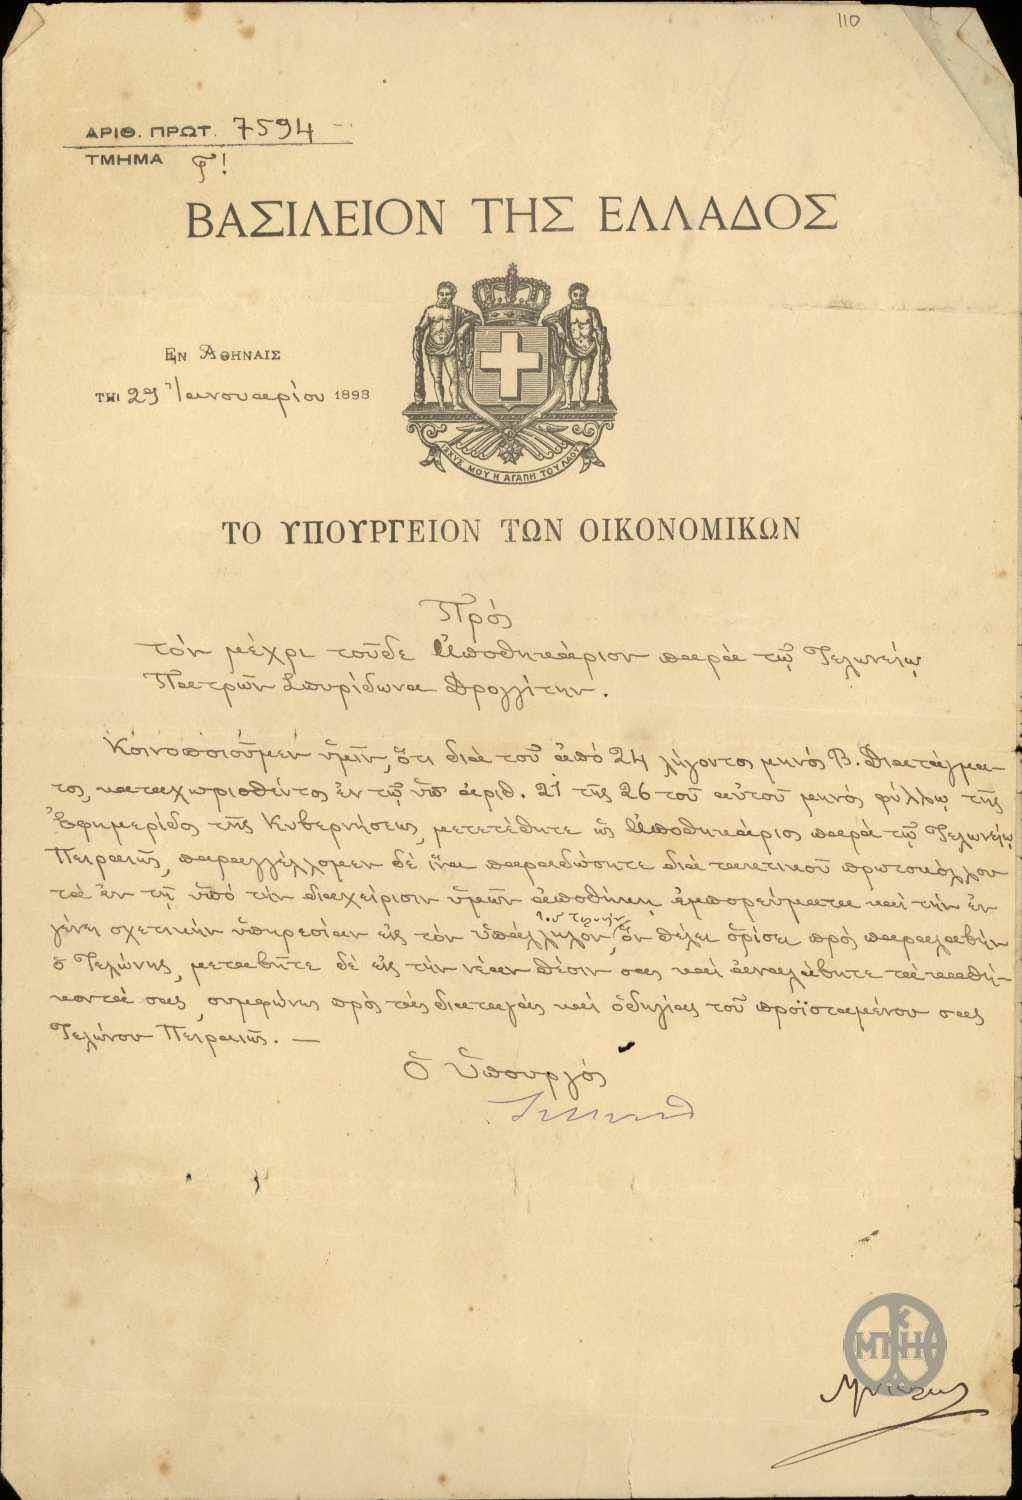 110
ΑΡΙΘ. ΠΡΩΤ. 7594
ΤΜΗΜΑ
ΒΑΣΙΛΕΙΟΝ ΤΗΣ ΕΛΛΑΔΟΣ
ΕΝ ΑΘΗΝΑΙΣ
ΤΗΙ 29 Ἰανουαρίου 1893
ΙΣΧΥΣ ΜΟΥ Η ΑΓΑΠΗ ΤΟΥ ΛΑΟΥ
ΤΟ ΥΠΟΥΡΓΕΙΟΝ ΤΩΝ ΟΙΚΟΝΟΜΙΚΩΝ
Πρός
τόν μέχρι τοῦδε Ἀποθηκάριον παρά τῷ Τελωνείῳ
Πατρῶν Σπυρίδωνα Δρολλίτην.
Κοινοποιοῦμεν ὑμῖν, ὅτι διά τοῦ ἀπό 24 λήγοντος μηνός Β. Διατάγμα-
τος, καταχωρισθέντος ἐν τῷ ὑπ ἀριθ. 21 τῆς 26 τοῦ αὐτοῦ μηνός φύλλῳ τῆς
Ἐφημερίδος τῆς Κυβερνήσεως, μετετέθητε ὡς Ἀποθηκάριος παρά τῷ Τελωνείῳ
Πειραιῶς, παραγγέλλομεν δέ ἵνα παραδώσητε διά τακτικοῦ πρωτοκόλλου
τά ἐν τῇ ὑπό τήν διαχείρισιν ὑμῶν ἀποθήκῃ ἐμπορεύματα καί τήν ἐν
γένει σχετικήν ὑπηρεσίαν εἰς τόν ὑπάλληλον, ὅν θέλει ὁρίσει πρός παραλαβήν
ὁ Τελώνης, μεταβῆτε δέ εἰς τήν νέαν θέσιν σας καί ἀναλάβητε τά καθή-
κοντά σας, συμφώνως πρός τάς διαταγάς καί ὁδηγίας τοῦ προϊσταμένου σας
Τελώνου Πειραιῶς. —
Ὁ Ὑπουργός
ΜΠΚΗ